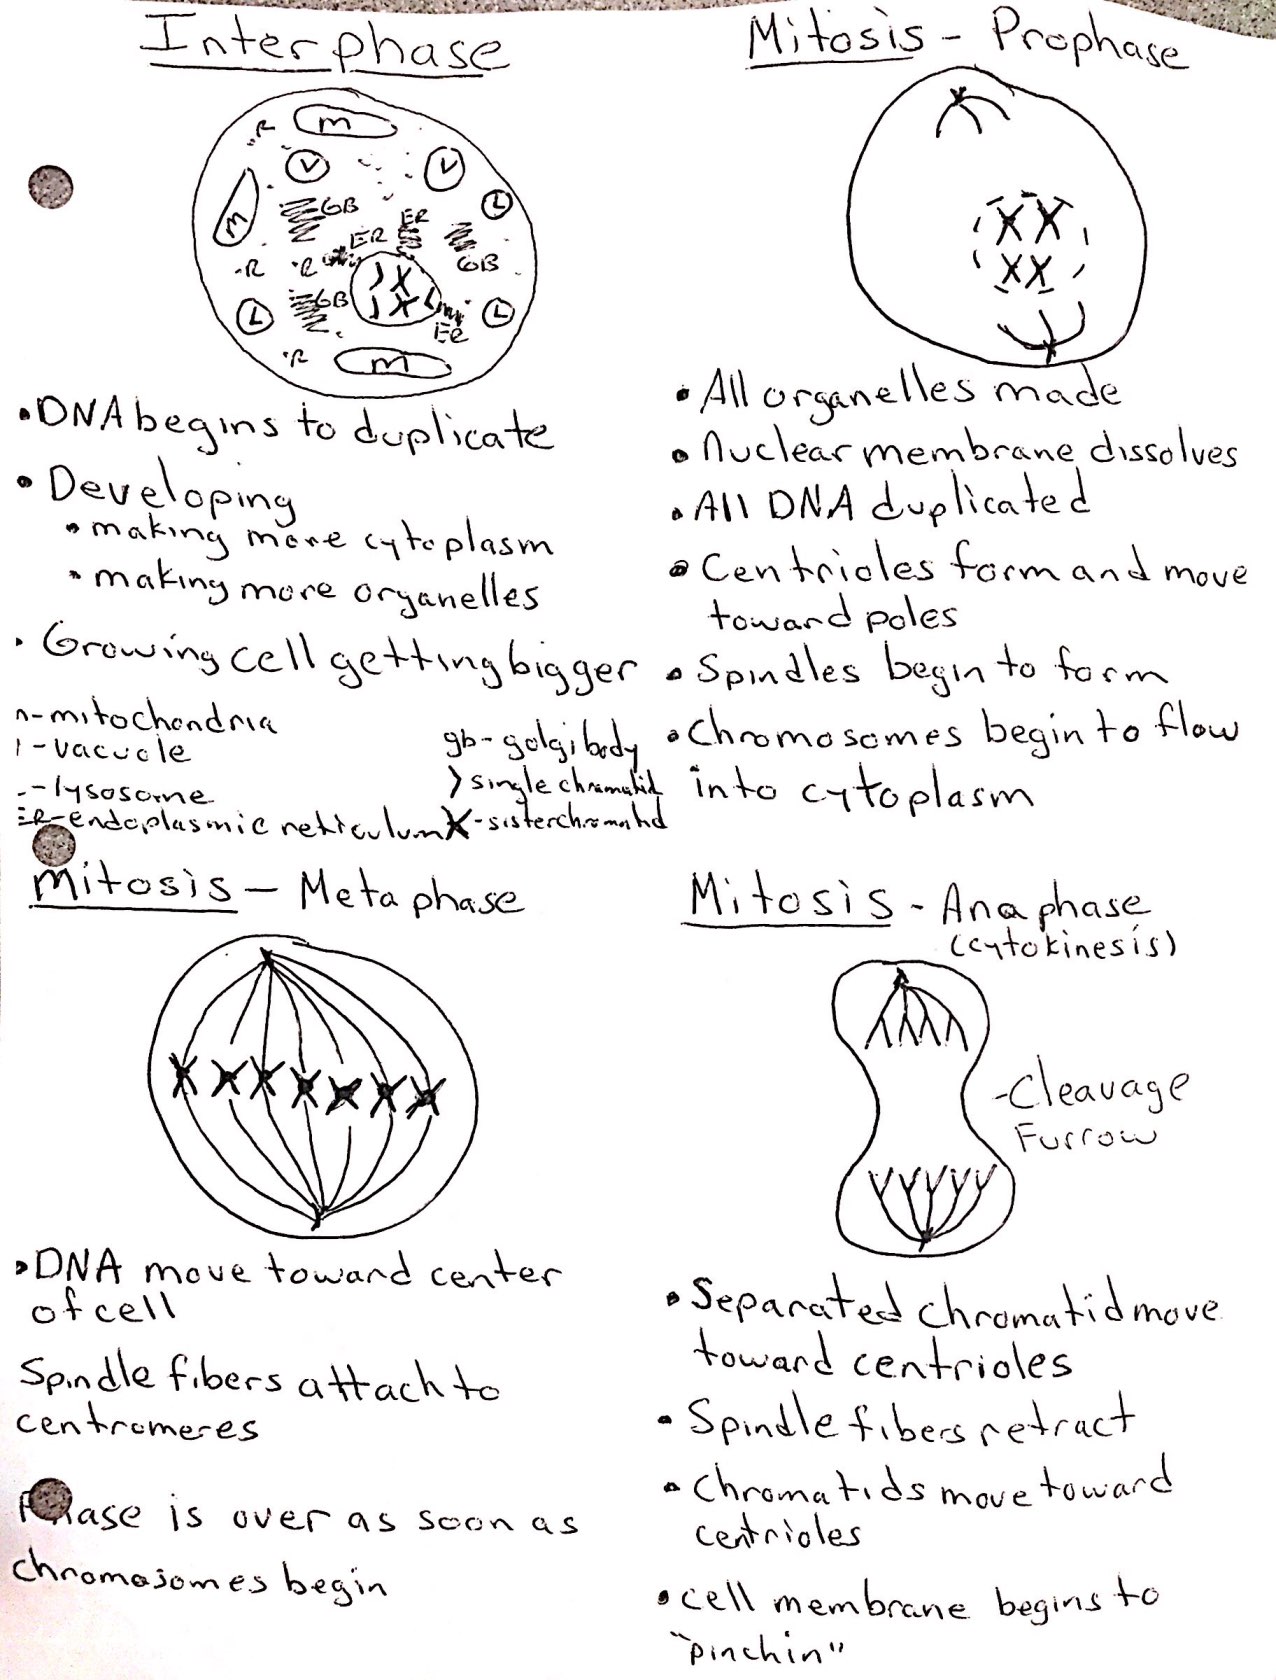 Interphase
R
m
V
V
L
m
GB
ER
ER
GB
R
R
GB
L
L
ER
R
m
• DNA begins to duplicate
• Developing
• making more cytoplasm
• making more organelles
• Growing cell getting bigger
-mitochondria
-vacuole
-lysosome
ER-endoplasmic reticulum
gb-golgi body
single chromatid
X-sisterchromatid
Mitosis - Prophase
• All organelles made
• Nuclear membrane dissolves
• All DNA duplicated
• Centrioles form and move
toward poles
• Spindles begin to form
• Chromosomes begin to flow
into cytoplasm
Mitosis - Metaphase
• DNA move toward center
of cell
Spindle fibers attach to
centromeres
Phase is over as soon as
chromosomes begin
Mitosis - Anaphase
(cytokinesis)
-Cleavage
Furrow
• Separated chromatid move
toward centrioles
• Spindle fibers retract
• Chromatids move toward
centrioles
• cell membrane begins to
"pinchin"